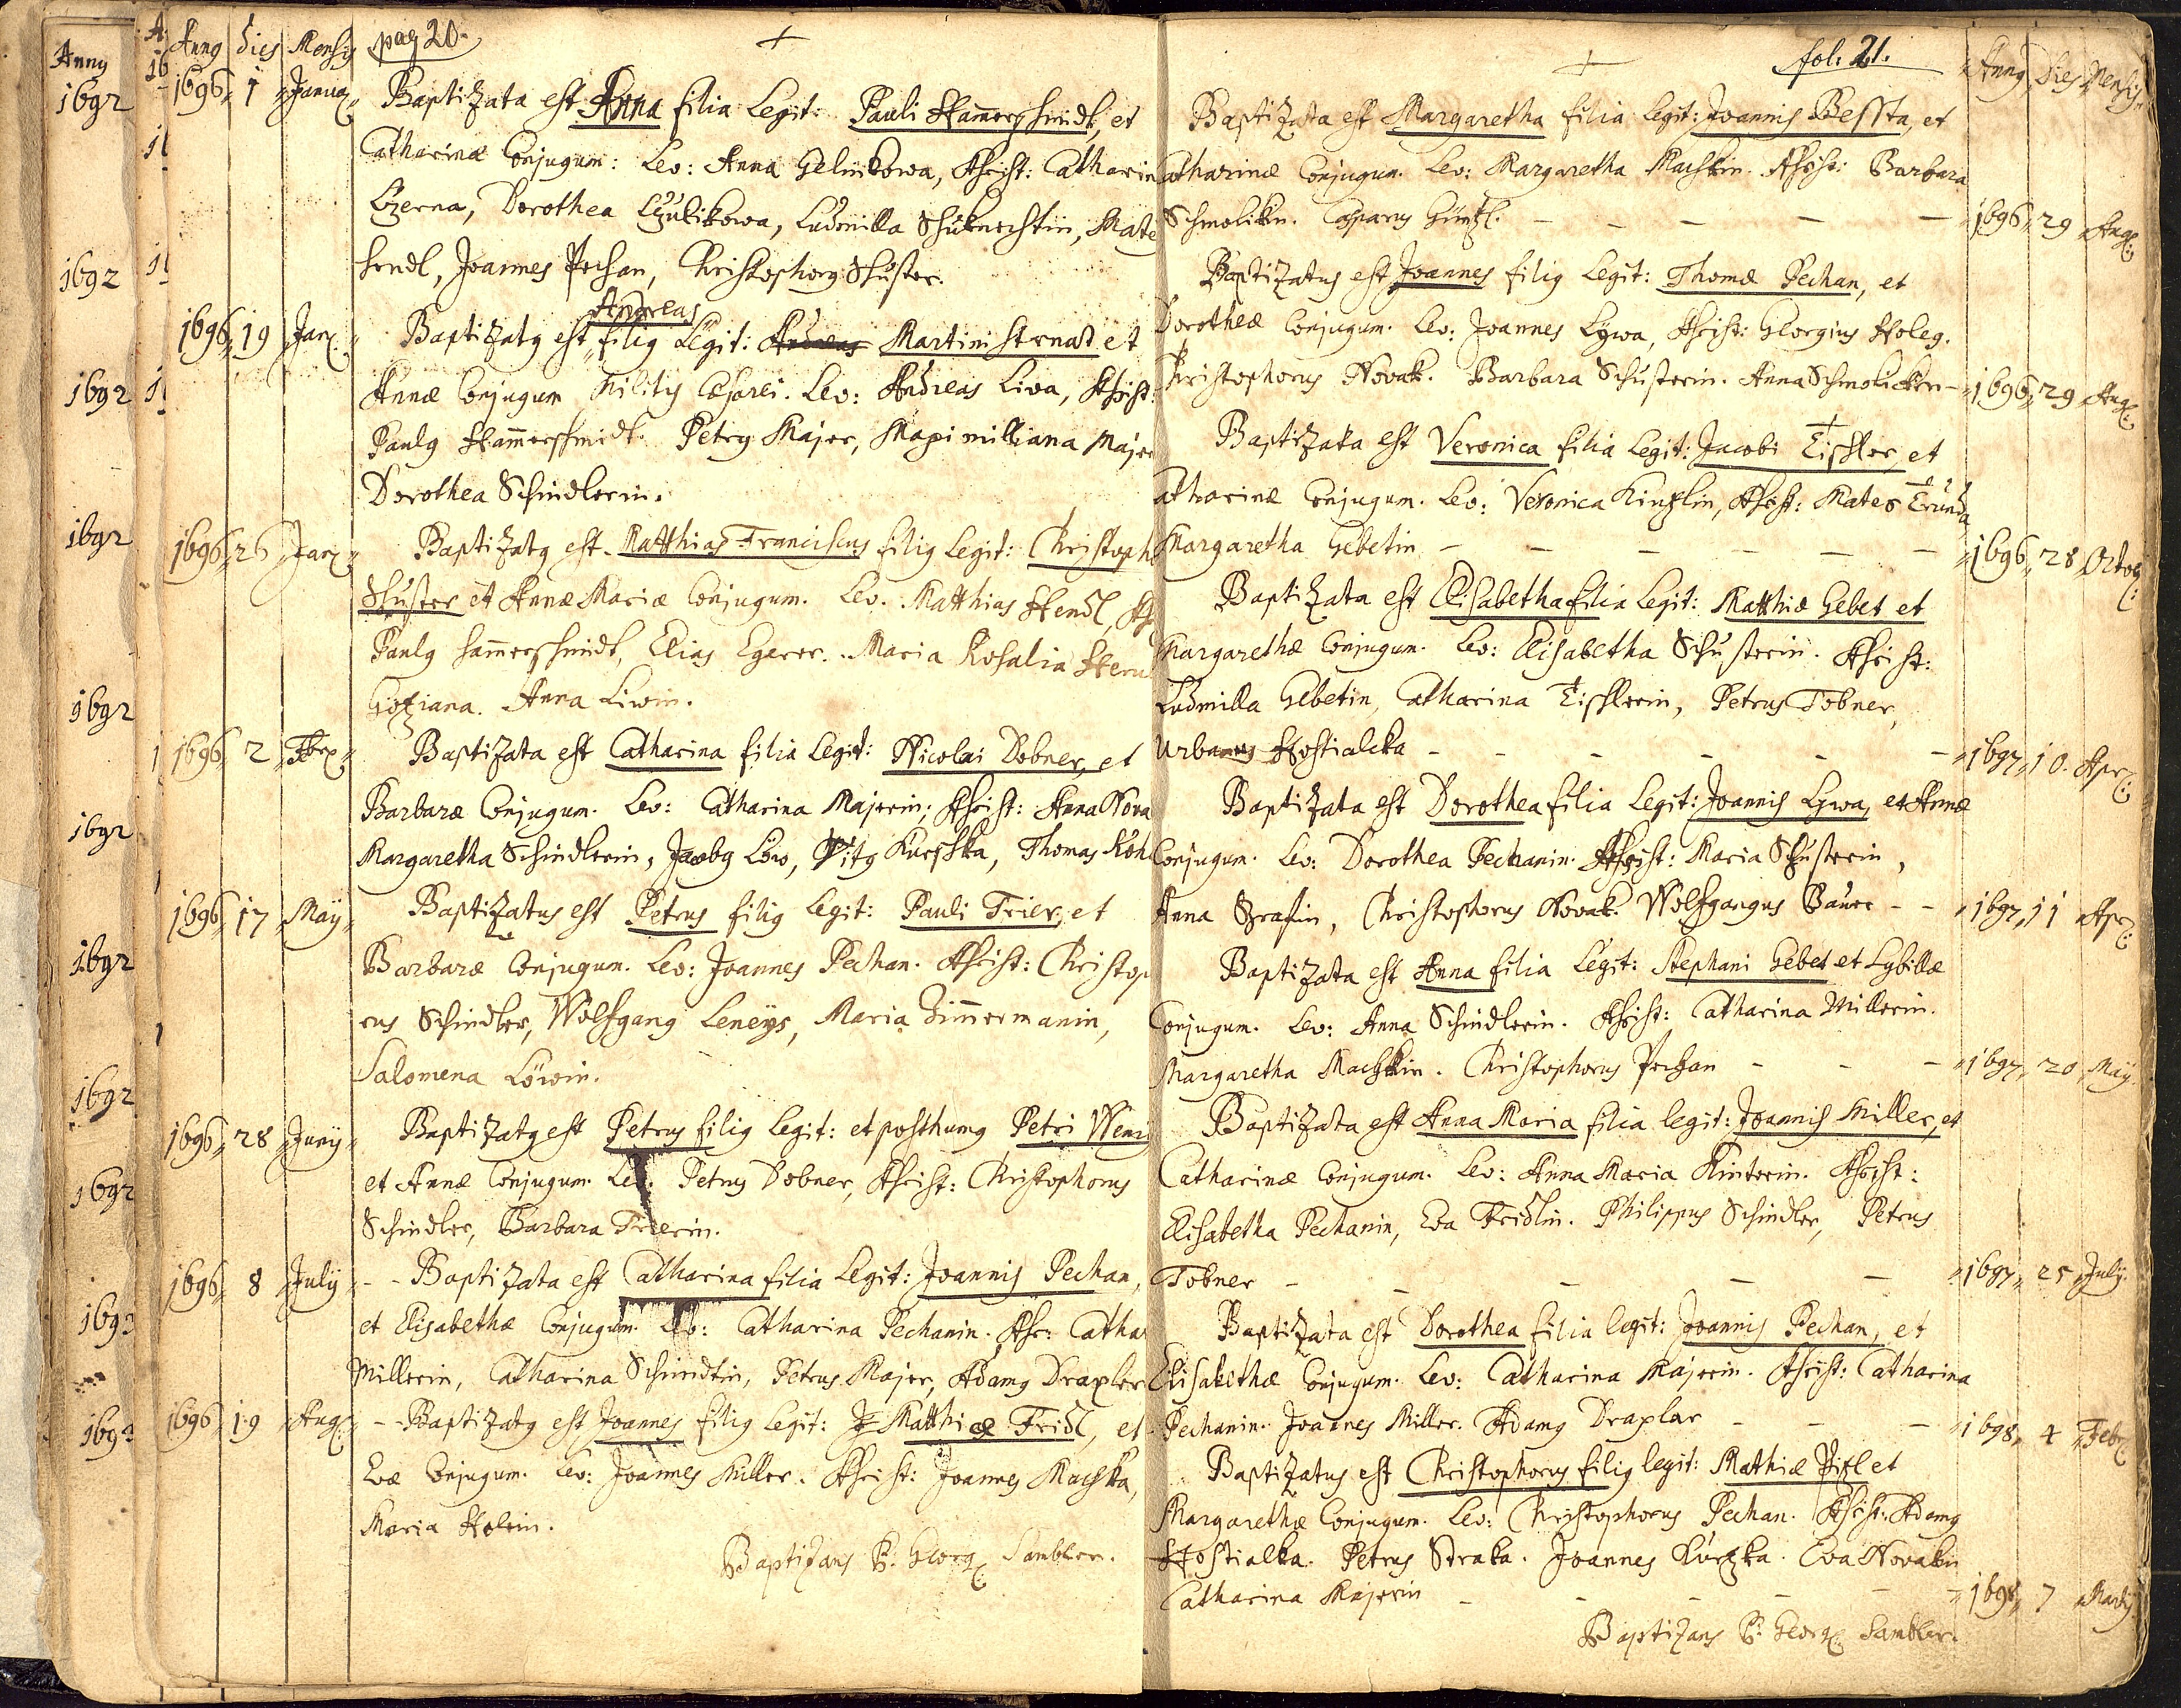 pag 20.
Anny dies Mensis
1696 1 Janua: Baptizata est Anna filia Legit: Pauli Hamerschmidt, et
Catharinæ Conjugum: Lev: Anna Gelinkowa, Assist: Catharin
Czerna, Dorothea Czulikowa, Ludmilla Schuknechtin, Mate
hendl, Joannes Pechan, Christophorg Schuster.
Andreas
1696 19 Jan: Baptizatg est filig Legit: Andreas Martini Strnad et
Annæ Conjugum Militis Cæsarei. Lev: Andreas Liva, Assist:
Paulg Hamerschmidt. Petrg Majer, Maximilliana Majer
Dorothea Schindlerin.
1696 26 Jan: Baptizatg est Matthias Franciscus filig Legit: Christoph
Schuster et Annæ Mariæ Conjugum. Lev. Matthias Hendl,
Paulg hamerschmidt, Elias Egerer. Maria Rosalia
Anna Liwin.
1696 2 Febr: Baptizata est Catharina filia Legit: Nicolai Dobner, et
Barbaræ Conjugum. Lev: Catharina Majerin; Assist: Anna Nova
Margaretha Schindlerin, Jacobg Löw, Vitg Kuczka, Thomas
1696 17 Maÿ Baptizatus est Petrus filig Legit: Pauli Trier, et
Barbaræ Conjugum. Lev: Joannes Pechan. Assist: Christop
rus Schindler, Wolfgang Leneÿs, Maria Zimmermanin,
Salomena Löwin.
1696 28 Junÿ Baptizatg est Petrus filig Legit: et posthumg Petri
et Annæ Conjugum. Lev. Petrus Dobner, Assist: Christophorus
Schindler, Barbara Trierin.
1696 8 Julÿ - - Baptizata est Catharina filia Legit: Joannis Pechan,
et Elisabethæ Conjugum. Lev: Catharina Pechanin. Ass: Catha
Millerin, Catharina Schmidtin, Petrus Majer, Adamg Draxler
1696 19 Aug: - - Baptizatg est Joannes filig Legit: Matthiæ Fridl, et
Evæ Conjugum. Lev: Joannes Miller. Assist: Joannes Machka,
Maria Holein.
Baptizans P. Georg: Sambler.
Anny
1692
1692
1692
1692
1692
1692
1692
1692
1692
1693
1693
fol: 21.
Anng Dies Mensis
Baptizata est Margaretha filia Legit: Joannis Bessta, et
Catharinæ Conjugum. Lev: Margaretha Machkin. Assist: Barbara
Schmolikin. Casparus Güntzl. - - - - 1696 29 Aug:
Baptizatus est Joannes filig Legit: Thomæ Pechan, et
Dorotheæ Conjugum. Lev: Joannes Lÿwa, Assist: Georgius Holeg.
Christophorus Novak. Barbara Schusterin. Anna Schmolicken - 1696 29 Aug:
Baptizata est Veronica filia Legit: Jacobi Tischler, et
Catharinæ Conjugum. Lev: Veronica Kinzlin, Assist: Mates Trunda,
Margaretha Gebetin - - - - - - 1696 28 Octob:
Baptizata est Elisabetha filia Legit: Matthiæ Gebet et
Margarethæ Conjugum. Lev: Elisabetha Schusterin. Assist:
Ludmilla Gebetin, Catharina Tischlerin, Petrus Tobner,
Urbanus Hostialcka - - - - - 1697 10. Apr:
Baptizata est Dorothea filia Legit: Joannis Lÿwa, et Annæ
Conjugum. Lev: Dorothea Pechanin. Assist: Maria Schusterin,
Anna Grafin, Christophorus Novak. Wolfgangus Bauer - - 1697 11 Apr:
Baptizata est Anna filia Legit: Stephani Gebet et Sybillæ
Conjugum. Lev: Anna Schindlerin. Assist: Catharina Millerin.
Margaretha Machkin. Christophorus Pechan - - - 1697 20 Maÿ
Baptizata est Anna Maria filia legit: Joannis Miller, et
Catharinæ Conjugum. Lev: Anna Maria Kinterin. Assist:
Elisabetha Pechanin, Eva Fridlin. Philippus Schindler, Petrus
Tobner - - - - - 1697 25 Julÿ
Baptizata est Dorothea filia legit: Joannis Pechan, et
Elisabethæ Conjugum. Lev: Catharina Majerin. Assist: Catharina
Pechanin. Joannes Miller. Adamg Draxlar - - - 1698 4 Feb:
Baptizatus est Christophorus filig legit: Mathiæ Pixl et
Margarethæ Conjugum. Lev: Christophorus Pechan. Assist: Adamg
Hostialka. Petrus Straka. Joannes Kuczka. Eva Novakin
Catharina Majerin - - - - - 1698 7 Martÿ
Baptizans P. Georg: Sambler.